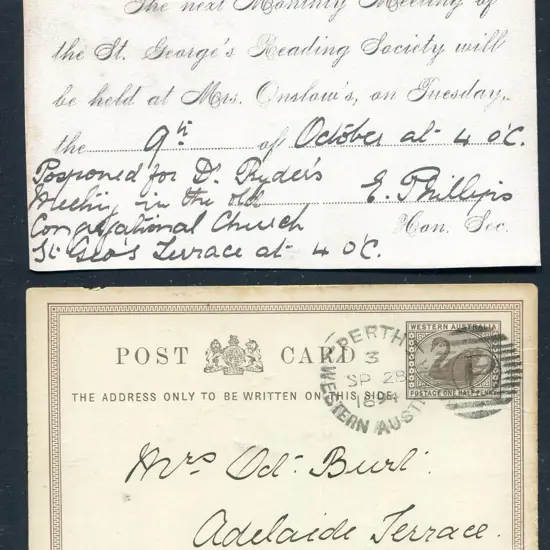 The next Monthly Meeting of
the St. George's Reading Society will
be held at Mrs. Onslow's, on Tuesday,
the 9th of October at 4 o'C.
Postponed for Dr. Ryder's
Meeting in the old
E. Phillips
Congregational Church
Hon. Sec.
St Geo's Terrace at 4 o'C.
POST CARD
THE ADDRESS ONLY TO BE WRITTEN ON THIS SIDE.
WESTERN AUSTRALIA
POSTAGE ONE HALF PENNY
PERTH
3
SP 28
94
WESTERN AUST
Mrs Oct. Burt.
Adelaide Terrace.